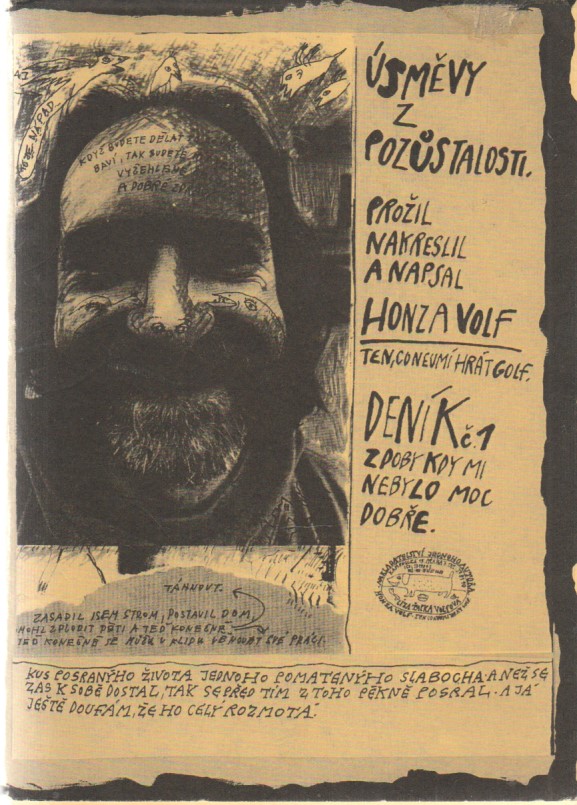 ÚSMĚVY
Z
POZŮSTALOSTI.
PROŽIL
NAKRESLIL
A NAPSAL
HONZA VOLF
TEN, CO NEUMÍ HRÁT GOLF.
DENÍK č.1
Z DOBY KDY MI
NEBYLO MOC
DOBŘE.
KDYŽ BUDETE DĚLAT
BAVÍ, TAK BUDETE
VYŽEHLENÉ
A DOBŘE
NÁPAD
TÁHNOUT.
ZASADIL JSEM STROM, POSTAVIL DŮM,
MOHL ZPLODIT DĚTI A TEĎ KONEČNĚ
TEĎ KONEČNĚ SE MŮŽU V KLIDU VĚNOVAT SVÉ PRÁCI.
KUS POSRANÝHO ŽIVOTA JEDNOHO POMATENÝHO SLABOCHA. A NEŽ SE
ZAS K SOBĚ DOSTAL, TAK SE PŘED TÍM Z TOHO PĚKNĚ POSRAL. A JÁ
JEŠTĚ DOUFÁM, ŽE HO CELÝ ROZMOTÁ.